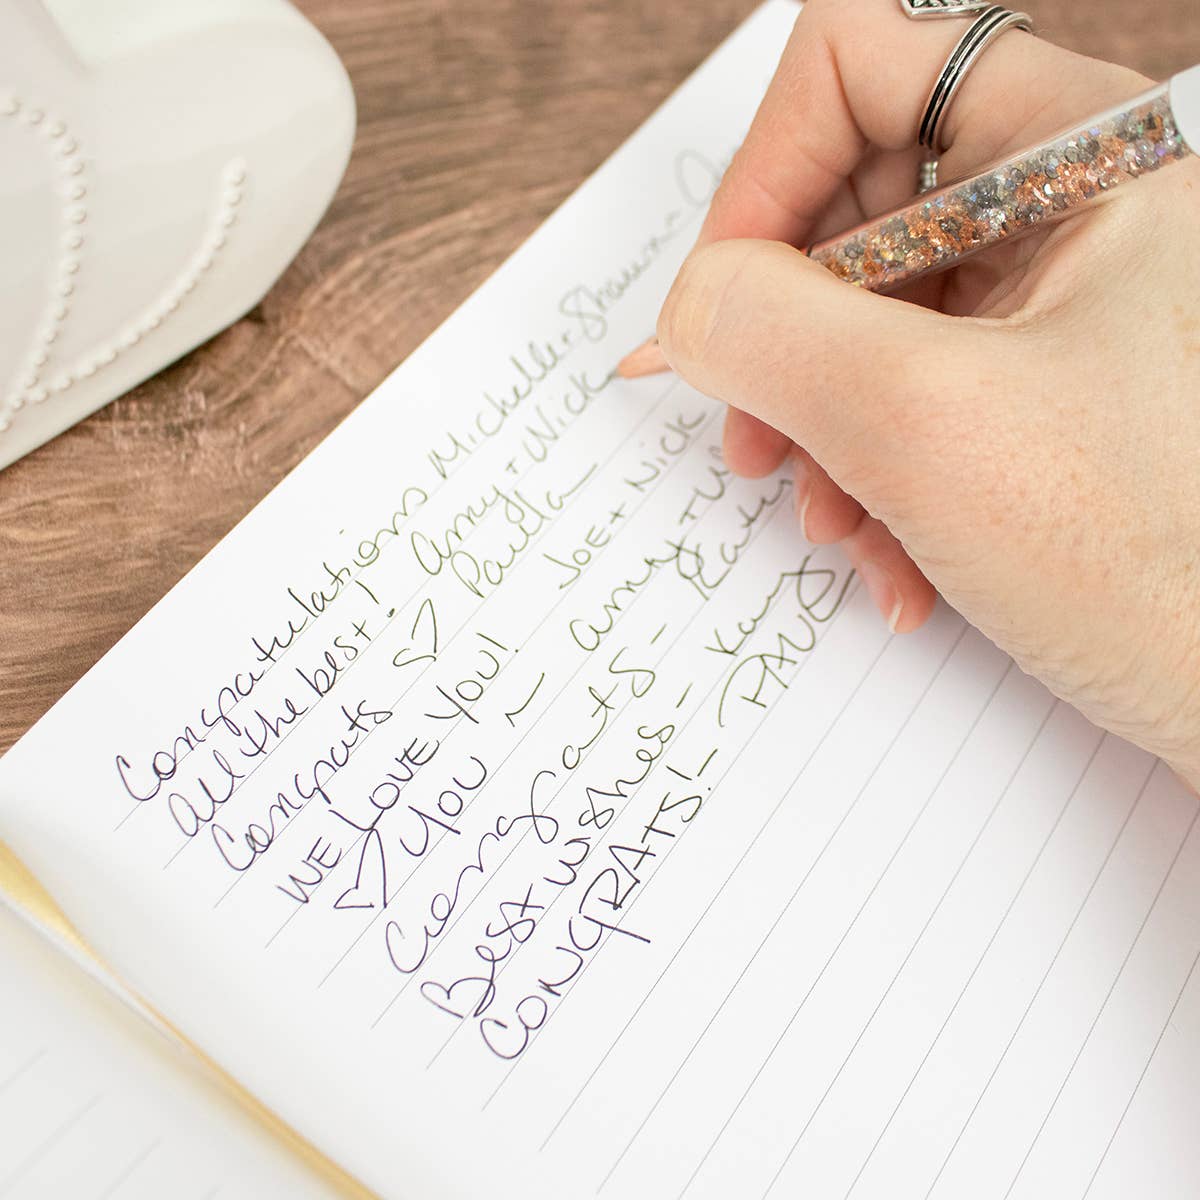 Congratulations Michelle + Shawn -
All the best! Amy + Nick
Congrats ♡ Paula
WE LOVE YOU! JOE + NICK
♡ YOU ~ Amy +
Congrats - Katy
Best Wishes - Kay
CONGRATS! - DAVE